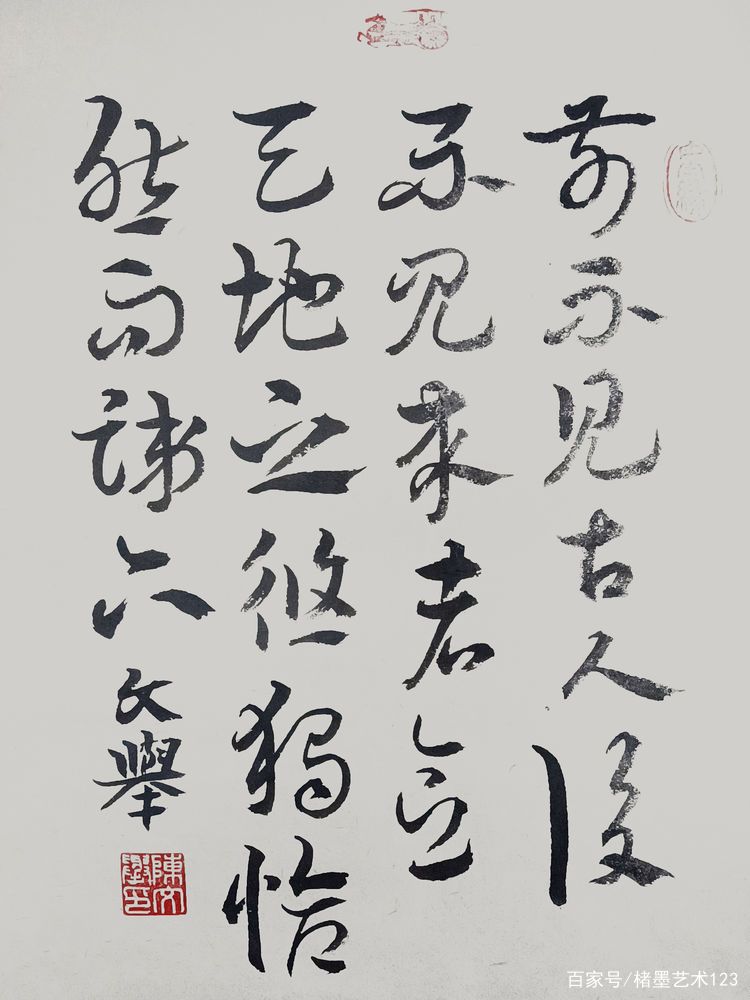 前不见古人後
不见来者念
天地之悠獨怆
然而涕下
文舉
陳文舉印
百家号/楮墨艺术123